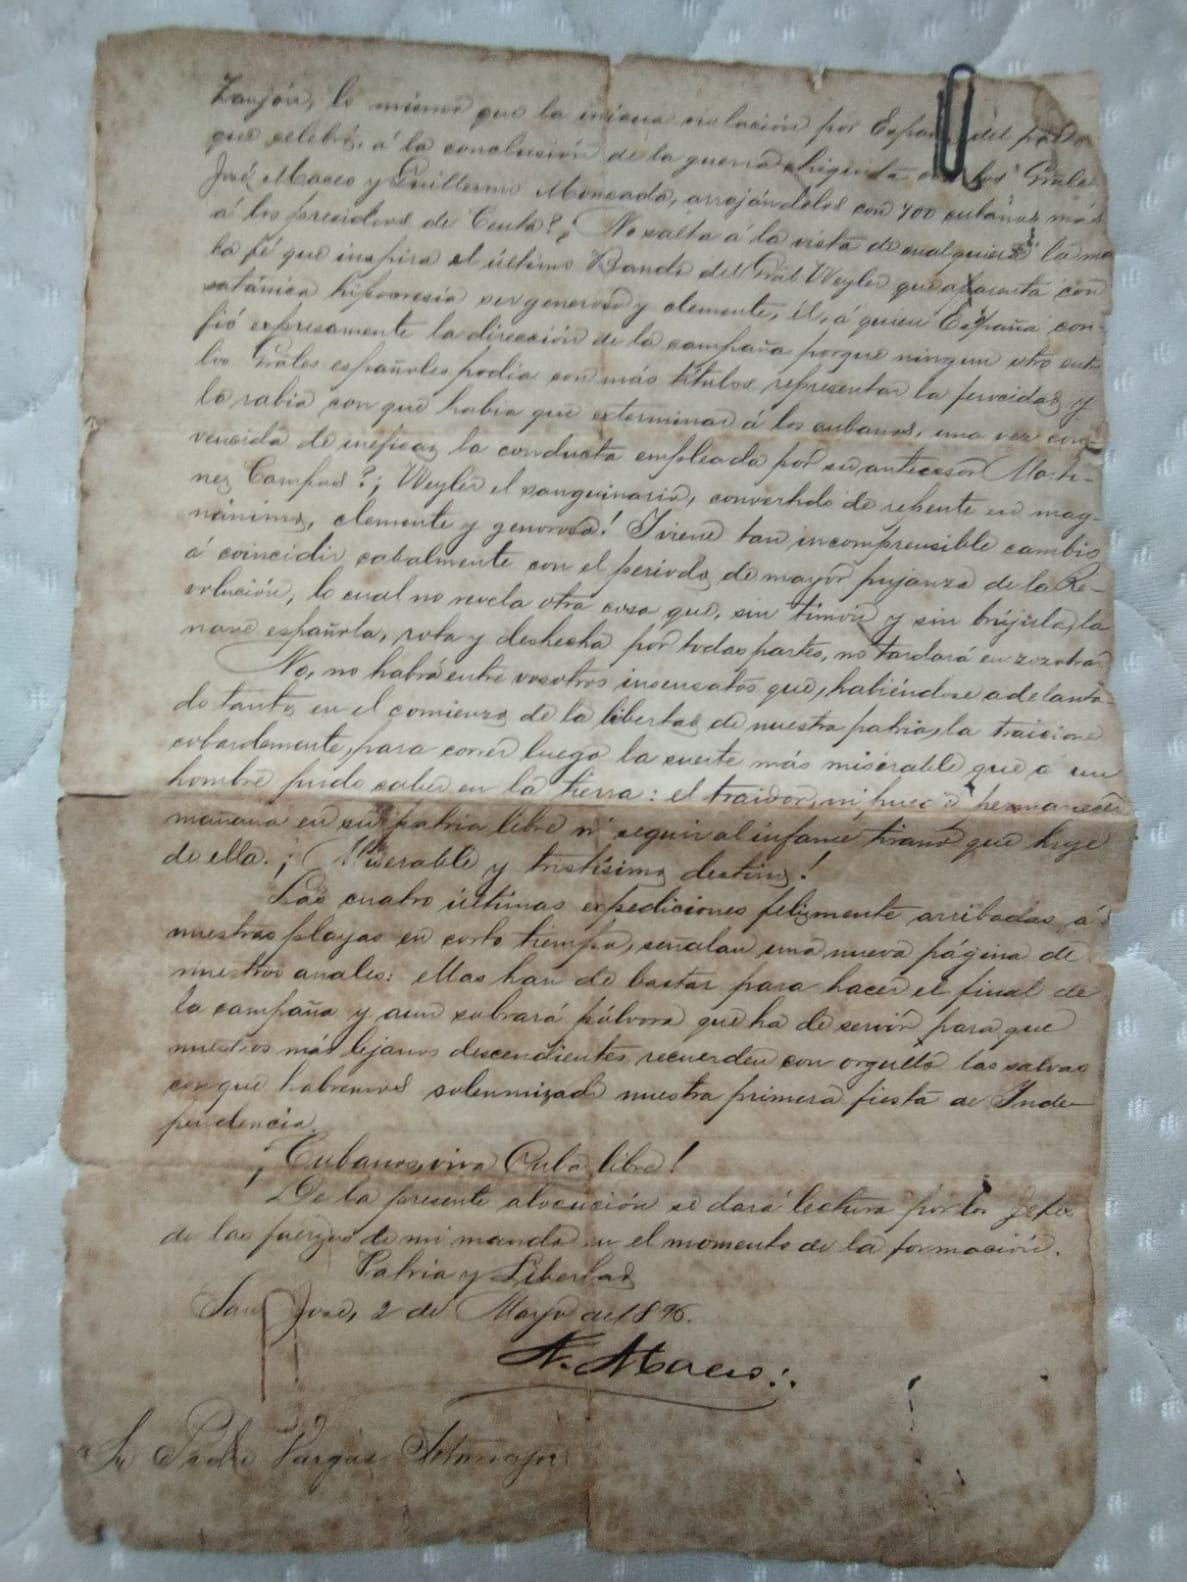 Zanjón, lo mismo que la inicua violación por España del pacto
que celebró, á la conclusión de la guerra chiquita con los Grales
José Maceo y Guillermo Moncada, arrojándolos con 400 cubanos más
á los presidios de Ceuta? ¿No salta á la vista de cualquiera la ma
la fé que inspira el último Bando del Gral Weyler que aparenta con
satánica hipocresía ser generoso y clemente, él, á quien España con-
fió expresamente la dirección de la campaña porque ningun otro entre
los Grales españoles podia con más títulos representar la ferocidad y
la rabia con que habia que exterminar á los cubanos, una vez con-
vencida de ineficaz la conducta empleada por su antecesor Marti-
nez Campos? ¡Weyler el sanguinario, convertido de repente en mag-
nánimo, clemente y generoso! Y viene tan incomprensible cambio
á coincidir cabalmente con el periodo de mayor pujanza de la Re-
volución, lo cual no revela otra cosa que, sin timón y sin brújula, la
nave española, rota y deshecha por todas partes, no tardará en zozobrar
No, no habrá entre vosotros insensatos que, habiéndose adelanta-
do tanto en el comienzo de la libertad de nuestra patria, la traicione
cobardemente, para correr luego la suerte más miserable que a un
hombre pudo caber en la tierra: el traidor, ni puede permanecer
mañana en su patria libre ni seguir al infame tirano que huye
de ella. ¡Miserable y tristísimo destino!
Las cuatro últimas expediciones felizmente arribadas á
nuestras playas en corto tiempo, señalan una nueva página de
nuestros anales: ellas han de bastar para hacer el final de
la campaña y aun sobrará pólvora que ha de servir para que
nuestros más lejanos descendientes recuerden con orgullo las salvas
con que habremos solemnizado nuestra primera fiesta de Inde-
pendencia.
¡Cubanos, viva Cuba libre!
De la presente alocución se dará lectura por los Jefes
de las fuerzas de mi mando en el momento de la formación.
Patria y Libertad
San José, 2 de Mayo de 1896.
A. Maceo
Sr Pedro Vargas Sotomayor